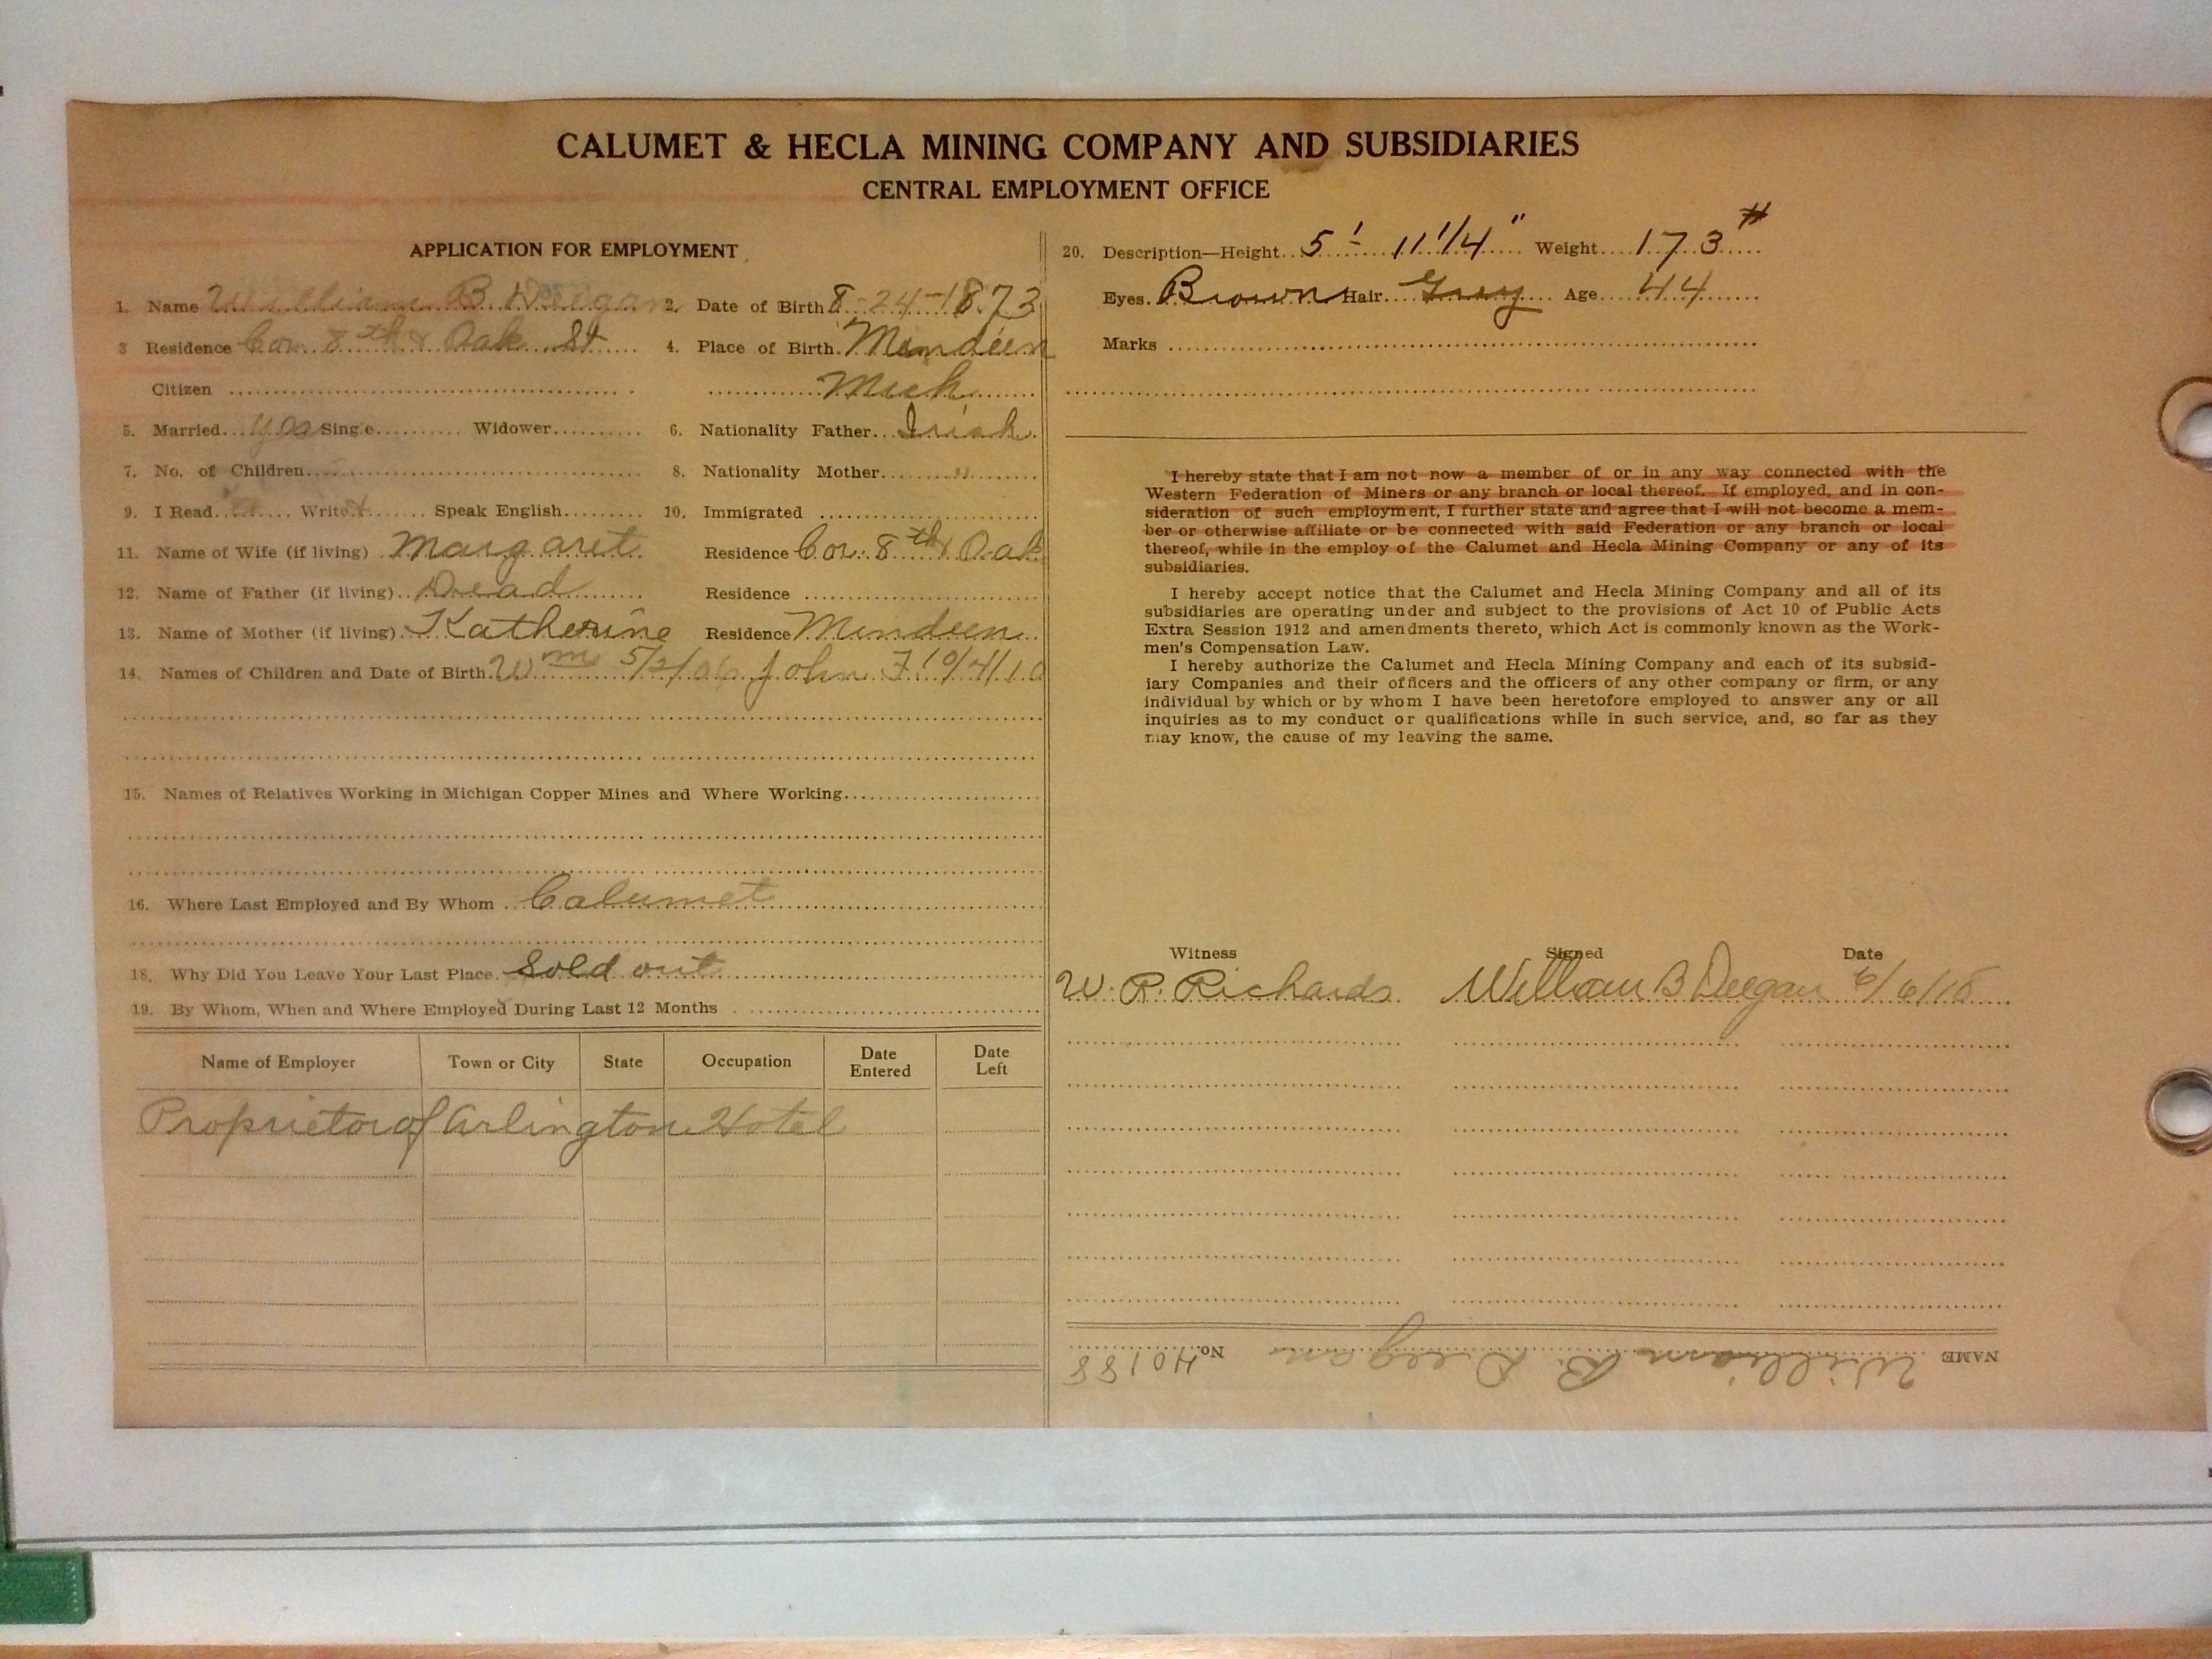 CALUMET & HECLA MINING COMPANY AND SUBSIDIARIES
CENTRAL EMPLOYMENT OFFICE
APPLICATION FOR EMPLOYMENT
1. Name William B. Deegan 2. Date of Birth 8-24-1873
3 Residence Cor. 8th & Oak St 4. Place of Birth Mindeen
Citizen Mich
5. Married yes Single Widower 6. Nationality Father Irish
7. No. of Children 8. Nationality Mother "
9. I Read Write Speak English 10. Immigrated
11. Name of Wife (if living) Margaret Residence Cor. 8th & Oak
12. Name of Father (if living) Dead Residence
13. Name of Mother (if living) Katherine Residence Mindeen
14. Names of Children and Date of Birth Wm 5/2/06 John F 10/4/10
15. Names of Relatives Working in Michigan Copper Mines and Where Working
16. Where Last Employed and By Whom Calumet
18. Why Did You Leave Your Last Place Sold out
19. By Whom, When and Where Employed During Last 12 Months
Name of Employer Town or City State Occupation Date Entered Date Left
Proprietor of Arlington Hotel
20. Description—Height 5'-11 1/4" Weight 173#
Eyes Brown Hair Grey Age 44
Marks
I hereby state that I am not now a member of or in any way connected with the
Western Federation of Miners or any branch or local thereof. If employed, and in con-
sideration of such employment, I further state and agree that I will not become a mem-
ber or otherwise affiliate or be connected with said Federation or any branch or local
thereof, while in the employ of the Calumet and Hecla Mining Company or any of its
subsidiaries.
I hereby accept notice that the Calumet and Hecla Mining Company and all of its
subsidiaries are operating under and subject to the provisions of Act 10 of Public Acts
Extra Session 1912 and amendments thereto, which Act is commonly known as the Work-
men's Compensation Law.
I hereby authorize the Calumet and Hecla Mining Company and each of its subsid-
iary Companies and their officers and the officers of any other company or firm, or any
individual by which or by whom I have been heretofore employed to answer any or all
inquiries as to my conduct or qualifications while in such service, and, so far as they
may know, the cause of my leaving the same.
Witness Signed Date
W. R. Richards William B Deegan
NAME William B. Deegan No. 40188